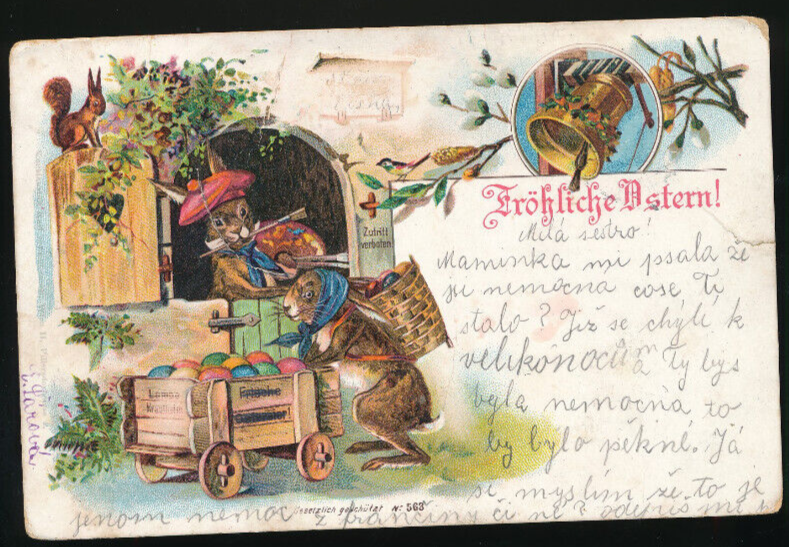 Fröhliche Ostern!
Zutritt
verboten
Milá sestro!
Maminka mi psala že
jsi nemocna cose Ti
stalo? Již se chýlí k
velikonocům a Ty bys
byla nemocna to
by bylo pěkné. Já
si myslím že to je
jenom nemoc z franciny či ne? odepiš mi
Frische
Gesetzlich geschützt No 563